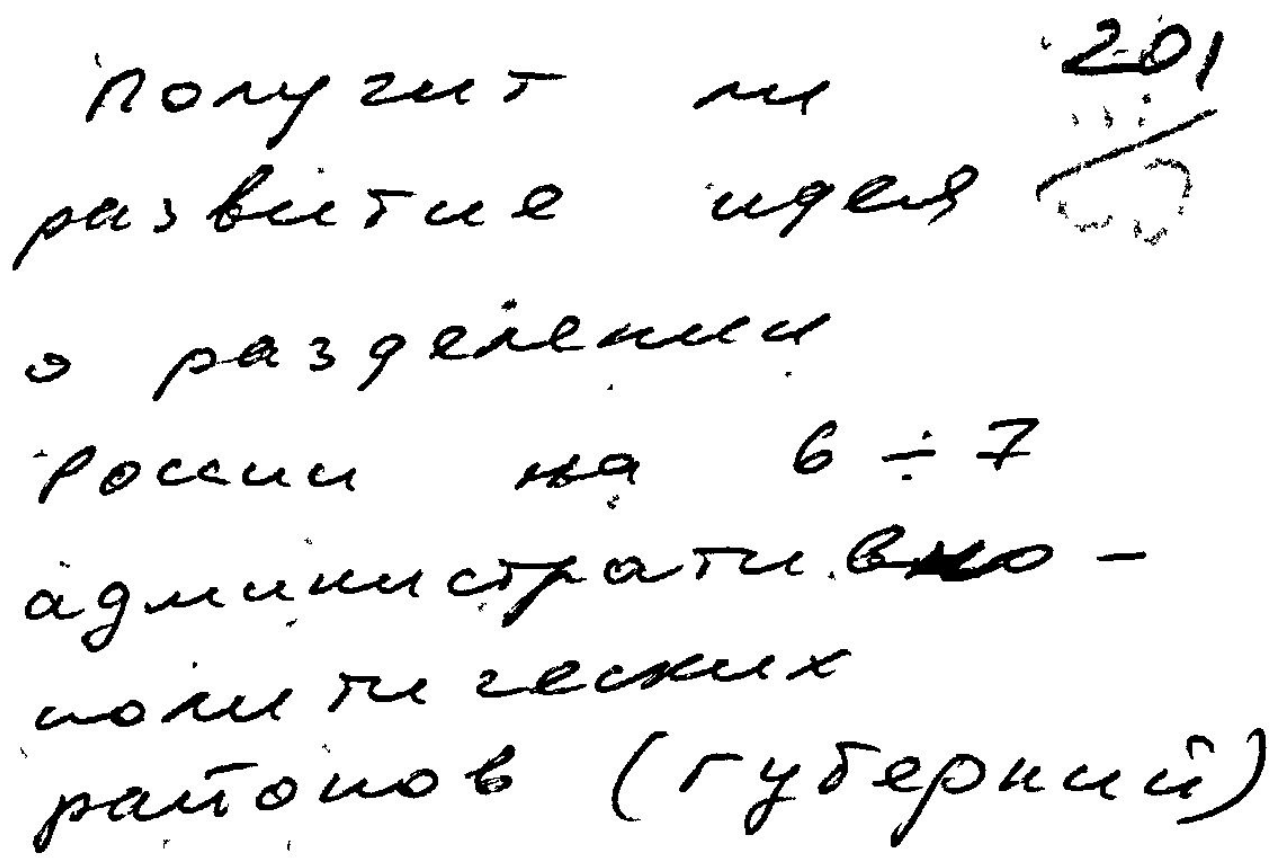 201
Получит ли
развитие идея
о разделении
России на 6 ÷ 7
административно-
политических
районов (губерний)